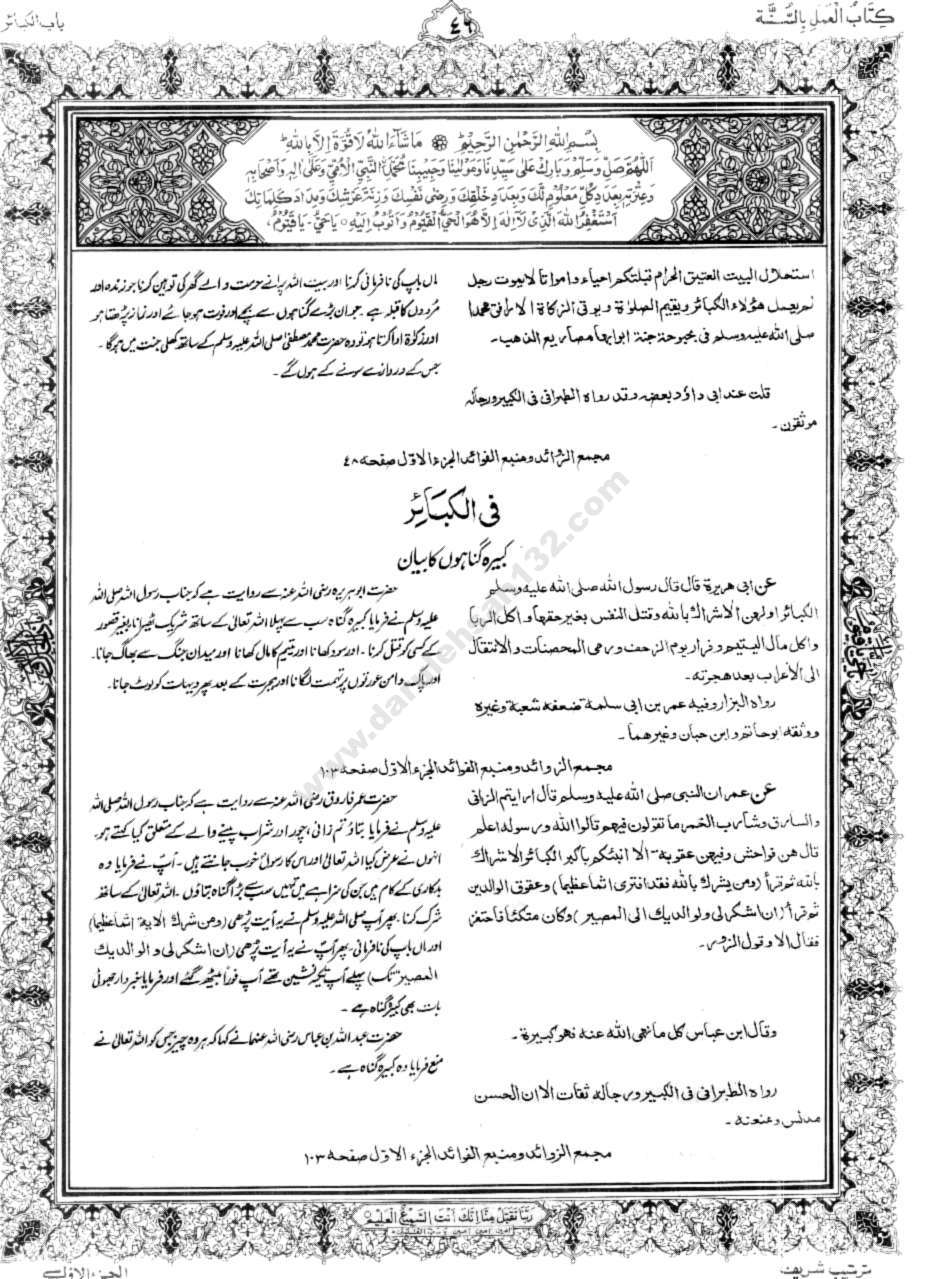 كتاب العمل بالسنة
٤٦
باب الكبائر
بسم الله الرحمن الرحيم ۞ ما شاء الله لا قوة الا بالله
اللهم صل وسلم وبارك على سيدنا ومولينا وحبيبنا محمد النبي الأمي وعلى اله واصحابه
وعترته بعدد كل معلوم لك وبعدد خلقك ورضى نفسك وزنة عرشك ومداد كلماتك
استغفر الله الذي لا اله الا هو الحي القيوم واتوب اليه ۰ يا حي ۔ يا قيوم
استحلال البيت العتيق الحرام قبلتكم احياء وامواتا لا يموت رجل
لم يعمل هؤلاء الكبائر ويقيم الصلوة ويوتى الزكاة الا رافق محمدا
صلى الله عليه وسلم فى بحبوحة جنة ابوابها مصاريع الذهب۔
ماں باپ کی نافرمانی کرنا اور بیت اللہ پرانے حرمت والے گھر کی توہین کرنا جو زندہ اور
مردوں کا قبلہ ہے ۔ جو ان بڑے گناہوں سے بچے اور فوت ہو جائے اور نماز پڑھتا ہو
اور زکوٰۃ ادا کرتا ہو تو وہ حضرت محمد مصطفیٰ صلی اللہ علیہ وسلم کے ساتھ کھلی جنت میں ہوگا۔
جس کے دروازے سونے کے ہوں گے ۔
قلت عند ابى داؤد بعضه وقد رواه الطبرانى فى الكبير ورجاله
موثقون ۔
مجمع الزوائد ومنبع الفوائد الجزء الاول صفحه ٤٨
فى الكبائر
کبیرہ گناہوں کا بیان
عن ابى هريرة قال قال رسول الله صلى الله عليه وسلم
الكبائر اولهن الاشراك بالله وقتل النفس بغير حقها واكل الربا
واكل مال اليتيم وفرار يوم الزحف ورمى المحصنات والانتقال
الى الأعراب بعد هجرته۔
حضرت ابوہریرہ رضی اللہ عنہ سے روایت ہے کہ جناب رسول اللہ صلی اللہ
علیہ وسلم نے فرمایا کبیرہ گناہ سب سے پہلا اللہ تعالیٰ کے ساتھ شریک ٹھہرانا بغیر قصور
کے کسی کو قتل کرنا ۔ اور سود کھانا اور یتیم کا مال کھانا اور میدان جنگ سے بھاگ جانا۔
اور پاک دامن عورتوں پر تہمت لگانا اور ہجرت کے بعد پھر دیہات کو لوٹ جانا۔
رواه البزار وفيه عمر بن ابى سلمة ضعفه شعبة وغيره
ووثقه ابو حاتم وابن حبان وغيرهما ۔
مجمع الزوائد ومنبع الفوائد الجزء الاول صفحه ١٠٣
عن عمران النبى صلى الله عليه وسلم قال ارايتم الزانى
والسارق وشارب الخمر ما تقولون فيهم قالوا الله ورسوله اعلم
قال هن فواحش وفيهن عقوبة۔ الا انبئكم باكبر الكبائر الاشراك
بالله ثم قرأ (ومن يشرك بالله فقد افترى اثما عظيما) وعقوق الوالدين
ثم قرأ (ان اشكرلى ولوالديك الى المصير) وكان متكئا فاحتفز
فقال الا وقول الزور۔
حضرت عمر فاروق رضی اللہ عنہ سے روایت ہے کہ جناب رسول اللہ صلی اللہ
علیہ وسلم نے فرمایا بتاؤ تم زانی، چور اور شراب پینے والے کے متعلق کیا کہتے ہو۔
انہوں نے عرض کیا اللہ تعالیٰ اور اس کا رسول خوب جانتے ہیں ۔ آپ نے فرمایا وہ
بدکاری کے کام ہیں جن کی سزا ہے میں تمہیں سب سے بڑا گناہ بتاؤں ۔ اللہ تعالیٰ کے ساتھ
شرک کرنا ۔ پھر آپ صلی اللہ علیہ وسلم نے یہ آیت پڑھی (ومن شرك الاية اثما عظيما)
اور ماں باپ کی نافرمانی پھر آپ نے یہ آیت پڑھی (ان اشكرلى ولوالديك
المصير تک) پہلے آپ تکیہ نشین تھے آپ فوراً بیٹھ گئے اور فرمایا خبردار جھوٹی
بات بھی کبیرہ گناہ ہے ۔
وقال ابن عباس كل ما نهى الله عنه فهو كبيرة ۔
حضرت عبد اللہ بن عباس رضی اللہ عنہما نے کہا کہ ہر وہ چیز جس کو اللہ تعالیٰ نے
منع فرمایا وہ کبیرہ گناہ ہے ۔
رواه الطبرانى فى الكبير ورجاله ثقات الا ان الحسن
مدلس وعنعنه ۔
مجمع الزوائد ومنبع الفوائد الجزء الاول صفحه ١٠٣
ربنا تقبل منا انك انت السميع العليم
ترتيب شريف
الجزء الاول
www.darulehsan132.com